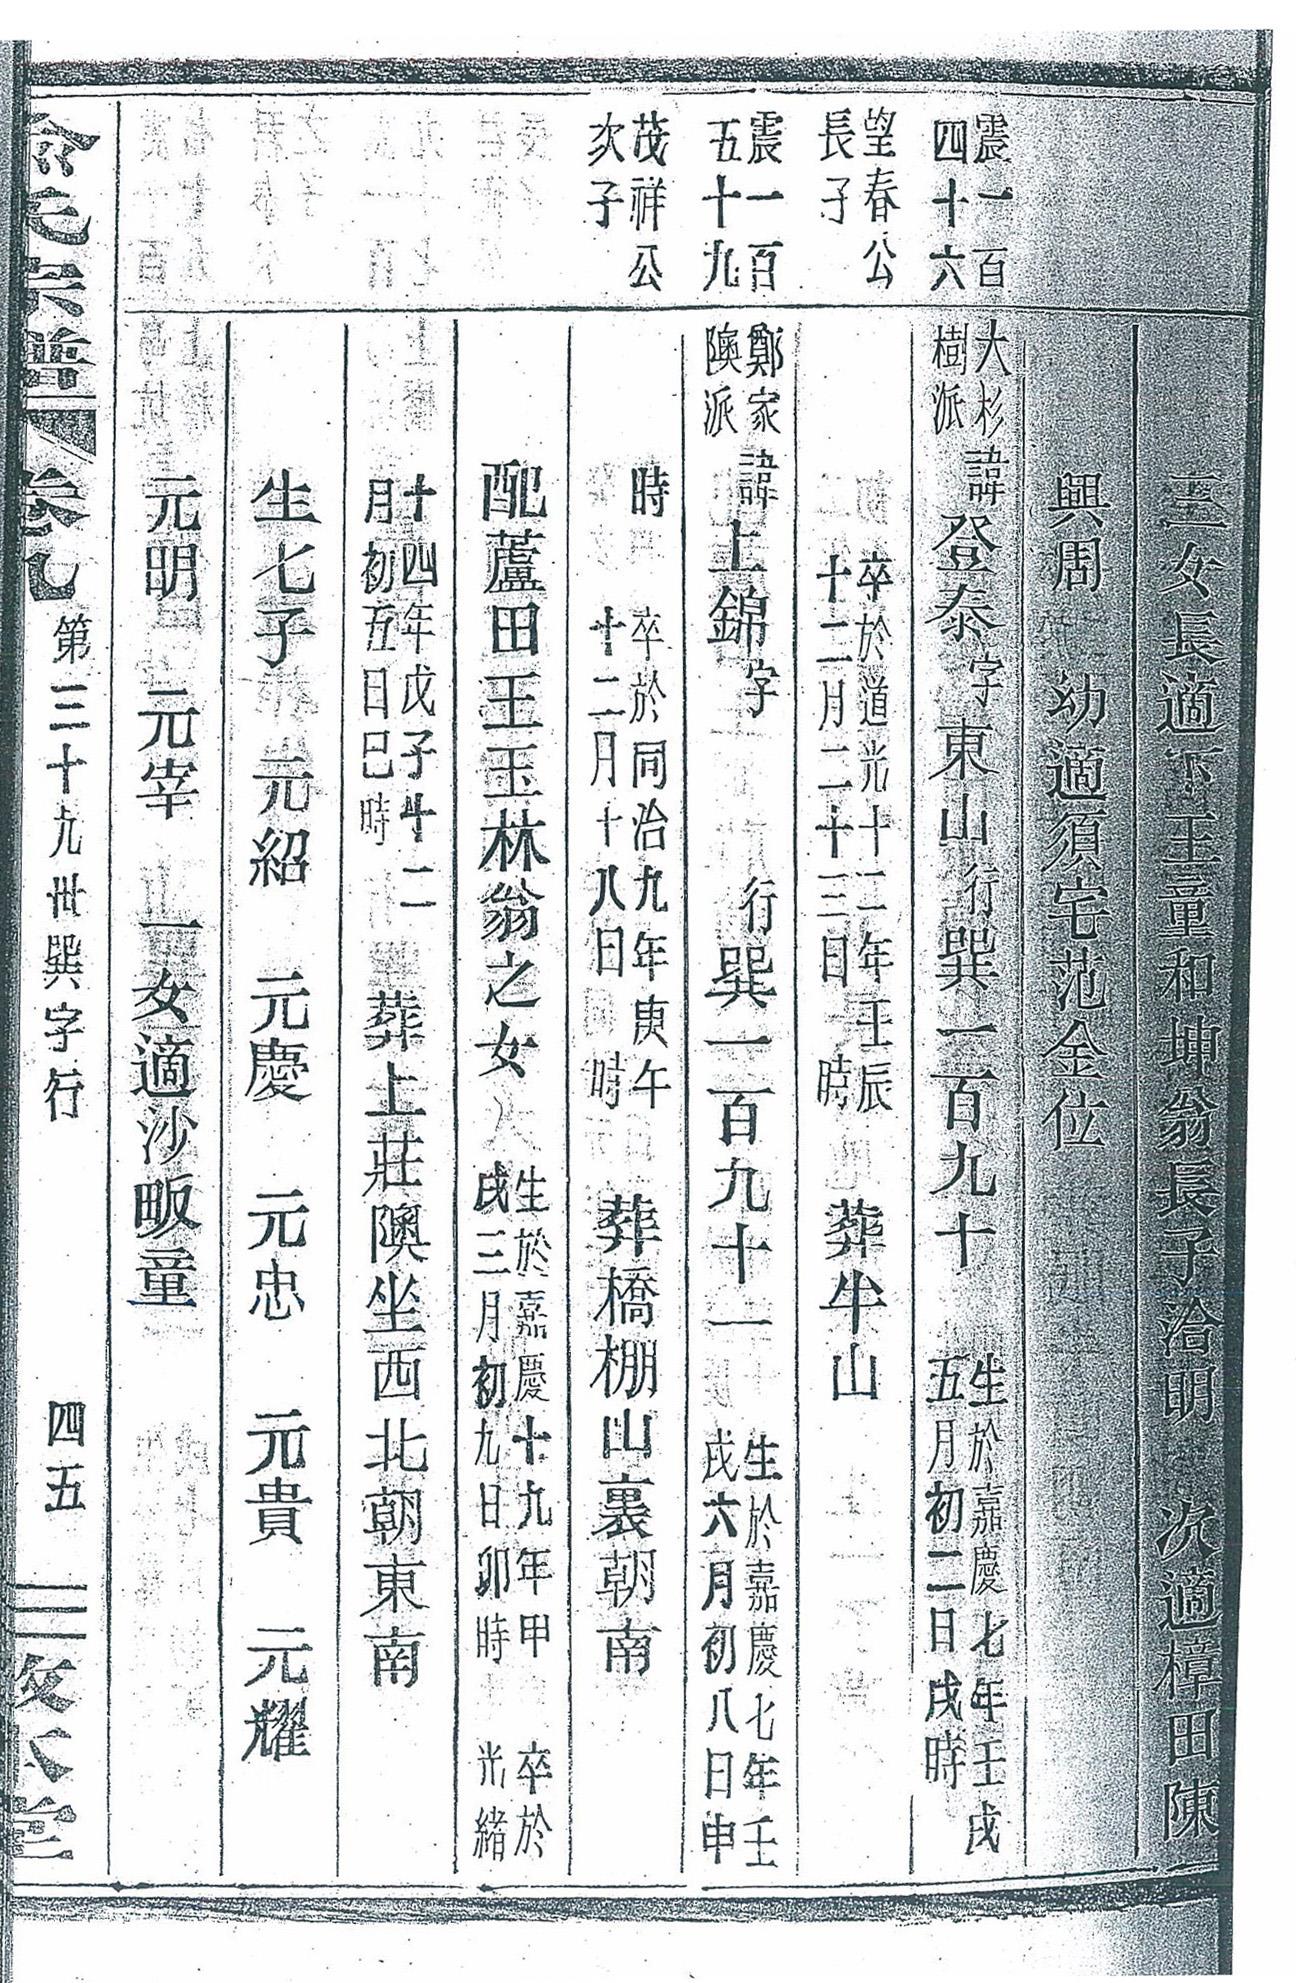 三女長適下王童和坤翁長子治明　次適樟田陳
興周　幼適須宅范金位
震一百
四十六
大杉
樹派
諱登泰字東山行巽一百九十
生於嘉慶七年壬戌
五月初二日戌時
望春公
長子
卒於道光十二年壬辰
十二月二十三日　時
葬牛山
震一百
五十九
鄭家
隩派
諱上錦字　行巽一百九十一
生於嘉慶七年壬
戌六月初八日申
茂祥公
次子
時
卒於同治九年庚午
十二月十八日　時
葬橋棚山裏朝南
配蘆田王玉林翁之女
生於嘉慶十九年甲
戌三月初九日卯時
卒於
光緒
十四年戊子十二
月初五日巳時
葬上莊隩坐西北朝東南
生七子　元紹　元慶　元忠　元貴　元耀
元明　元宰　一女適沙畈童
俞氏宗譜　卷九　第三十九世巽字行　四五　敦本堂